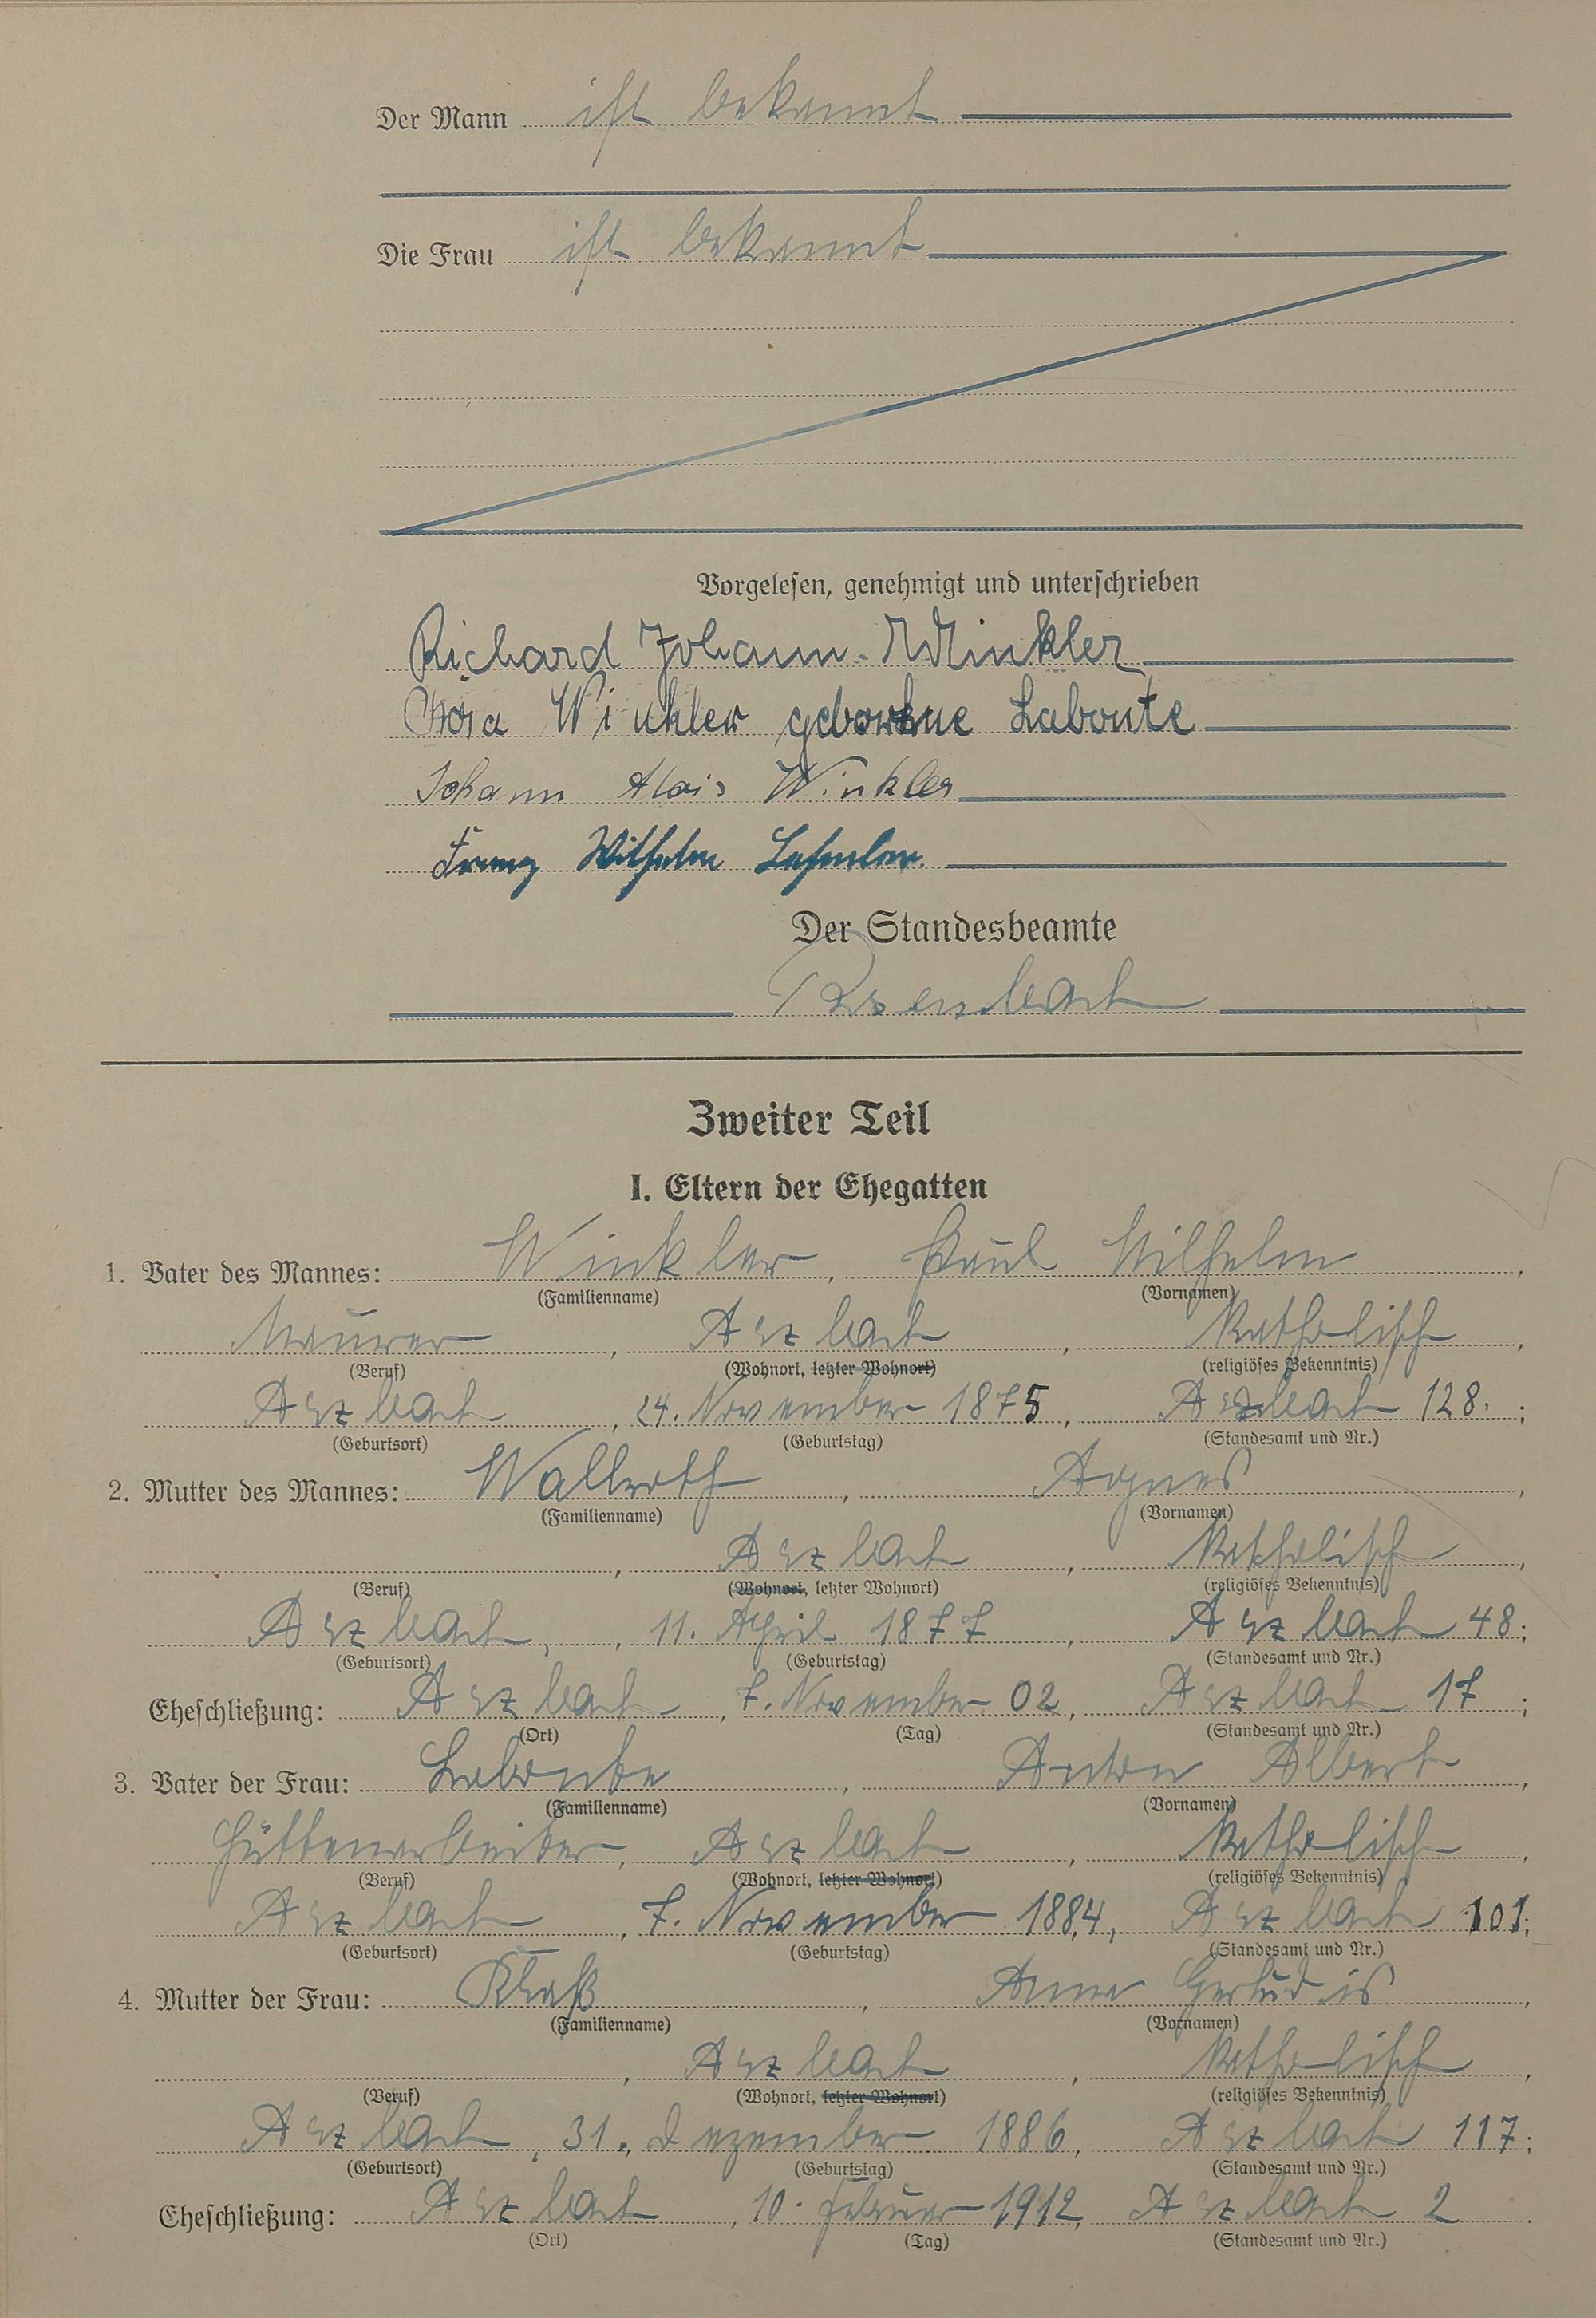 Der Mann ist bekannt
Die Frau ist bekannt
Vorgelesen, genehmigt und unterschrieben
Richard Johann Winkler
Winkler geborene Labonte
Johann Alois Winkler
Franz Wilhelm
Der Standesbeamte
Zweiter Teil
I. Eltern der Ehegatten
1. Vater des Mannes: Winkler, Paul Wilhelm,
(Familienname) (Vornamen)
Maurer, Arzbach, katholisch,
(Beruf) (Wohnort, letzter Wohnort) (religiöses Bekenntnis)
Arzbach, 24. November 1875, Arzbach 128.;
(Geburtsort) (Geburtstag) (Standesamt und Nr.)
2. Mutter des Mannes: Wallroth, Agnes,
(Familienname) (Vornamen)
, Arzbach, katholisch,
(Beruf) (Wohnort, letzter Wohnort) (religiöses Bekenntnis)
Arzbach, 11. April 1877, Arzbach 48;
(Geburtsort) (Geburtstag) (Standesamt und Nr.)
Eheschließung: Arzbach, 7. November 02, Arzbach 17;
(Ort) (Tag) (Standesamt und Nr.)
3. Vater der Frau: Labonte, Anton Albert,
(Familienname) (Vornamen)
Hüttenarbeiter, Arzbach, katholisch,
(Beruf) (Wohnort, letzter Wohnort) (religiöses Bekenntnis)
Arzbach, 7. November 1884, Arzbach 101;
(Geburtsort) (Geburtstag) (Standesamt und Nr.)
4. Mutter der Frau: Klaß, Anna Gertrudis,
(Familienname) (Vornamen)
, Arzbach, katholisch,
(Beruf) (Wohnort, letzter Wohnort) (religiöses Bekenntnis)
Arzbach, 31. Dezember 1886, Arzbach 117;
(Geburtsort) (Geburtstag) (Standesamt und Nr.)
Eheschließung: Arzbach, 10. Februar 1912, Arzbach 2.
(Ort) (Tag) (Standesamt und Nr.)